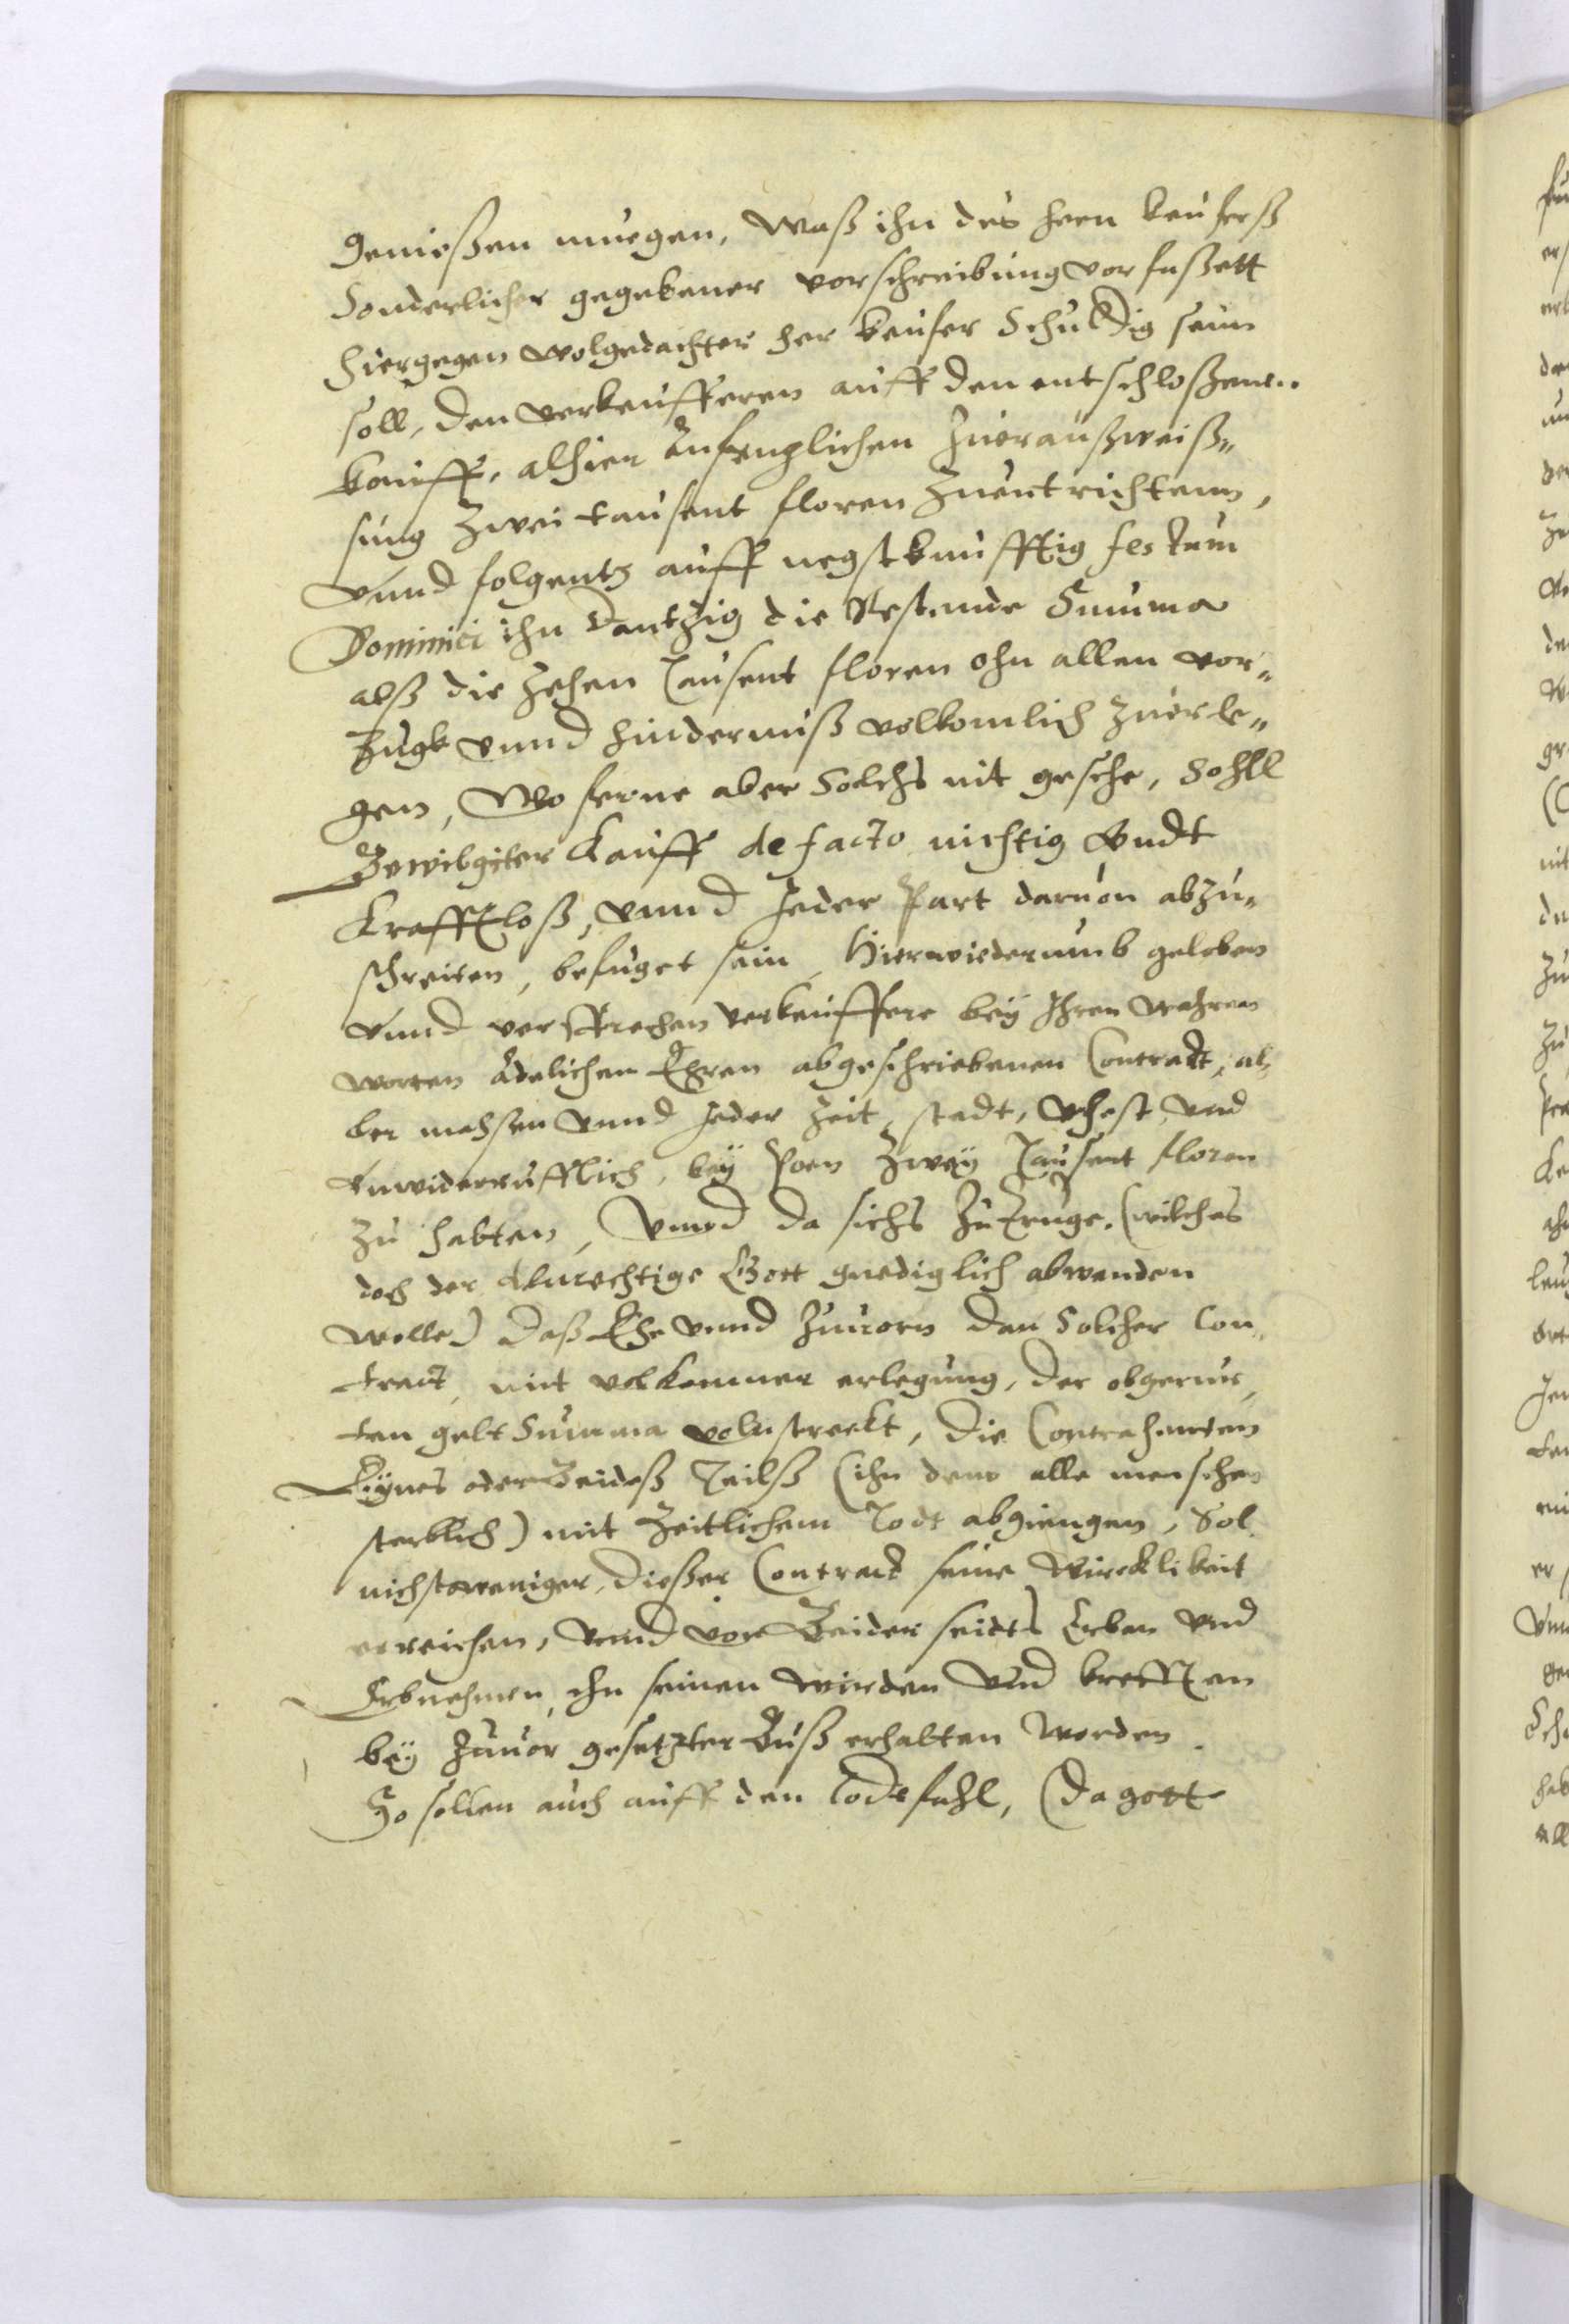 genießen muegen, Waß ihn des heren keuferß
Sonderlicher gegebener vorschreibung vorfaßett
hiergegen wolgedachter her keufer Schuldig sein
soll, den verkeufferen auff den entschloßenen
kauff, alhier Anfenglichen zuer außweiß„
sung zwei tausent floren zuentrichtenn,
vnnd folgentz auff negstkunfftig festum
Dominici ihn Dantzig die Restende Summa
alß die zehen Tausent floren ohn allen vor„
zugk vnnd hindernuß volkomlich zuerle„
gen, Wo ferne aber Solchs nit geschehe, Sohll
Bewilgter Kauff de facto nichtig Vndt
Krafftloß, vnnd Jeder Part daruon abzu„
schreiten, befuget sein, Hierwiederumb geloben
vnnd versprechen verkeuffere bey Ihren wahren
worten Adelichen Ehren abgeschriebenen Contract, al„
ler maßsen vnnd Jeder Zeit, stedt, vhest, vnd
vnwiderrufflich, bey Poen Zwey Tausent floren
zu halten, Vnnd da sichs zu truge, (wilches
doch der Almechtige Gott gnediglich abwenden
wolle) Daß Ehe vnnd Zuuorn dan Solcher Con„
tract, mit volkommer erlegung, der obgerur„
ten gelt Summa volnstreckt, Die Contrahenten
Eynes oder Beideß Teilß (ihn deme alle menschen
sterblich) mit Zeitlichem Todt abgiengen, Sol
nichstoweniger, Dießer Contract seine Wircklikeit
erreichen, vnnd von Beider seidts Erben vnd
Erbnehmen, ihn seinen wirden vnd krefften
bey Zuuor gesetzter Buß erhalten werden.
So sollen auch auff den Todsfahl, (Da gott